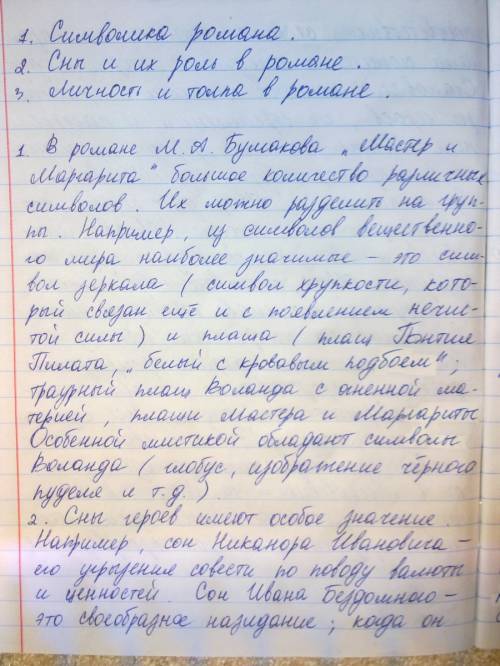 1. Символика романа.
2. Сны и их роль в романе.
3. Личность и толпа в романе.
1. В романе М. А. Булгакова „Мастер и
Маргарита" большое количество различных
символов. Их можно разделить на груп-
пы. Например, из символов вещественно-
го мира наиболее значимые - это сим-
вол зеркала (символ хрупкости, кото-
рый связан ещё и с появлением нечис-
той силы) и плаща (плащ Понтие
Пилата, „белый с кровавым подбоем";
траурный плащ Воланда с огненной ма-
терией, плащи Мастера и Маргариты
Особенной мистикой обладают символы
Воланда (глобус, изображение чёрного
пуделя и т.д.).
2. Сны героев имеют особое значение.
Например, сон Никанора Ивановича -
его угрызение совести по поводу валюты
и ценностей. Сон Ивана Бездомного -
это своеобразное назидание; когда он